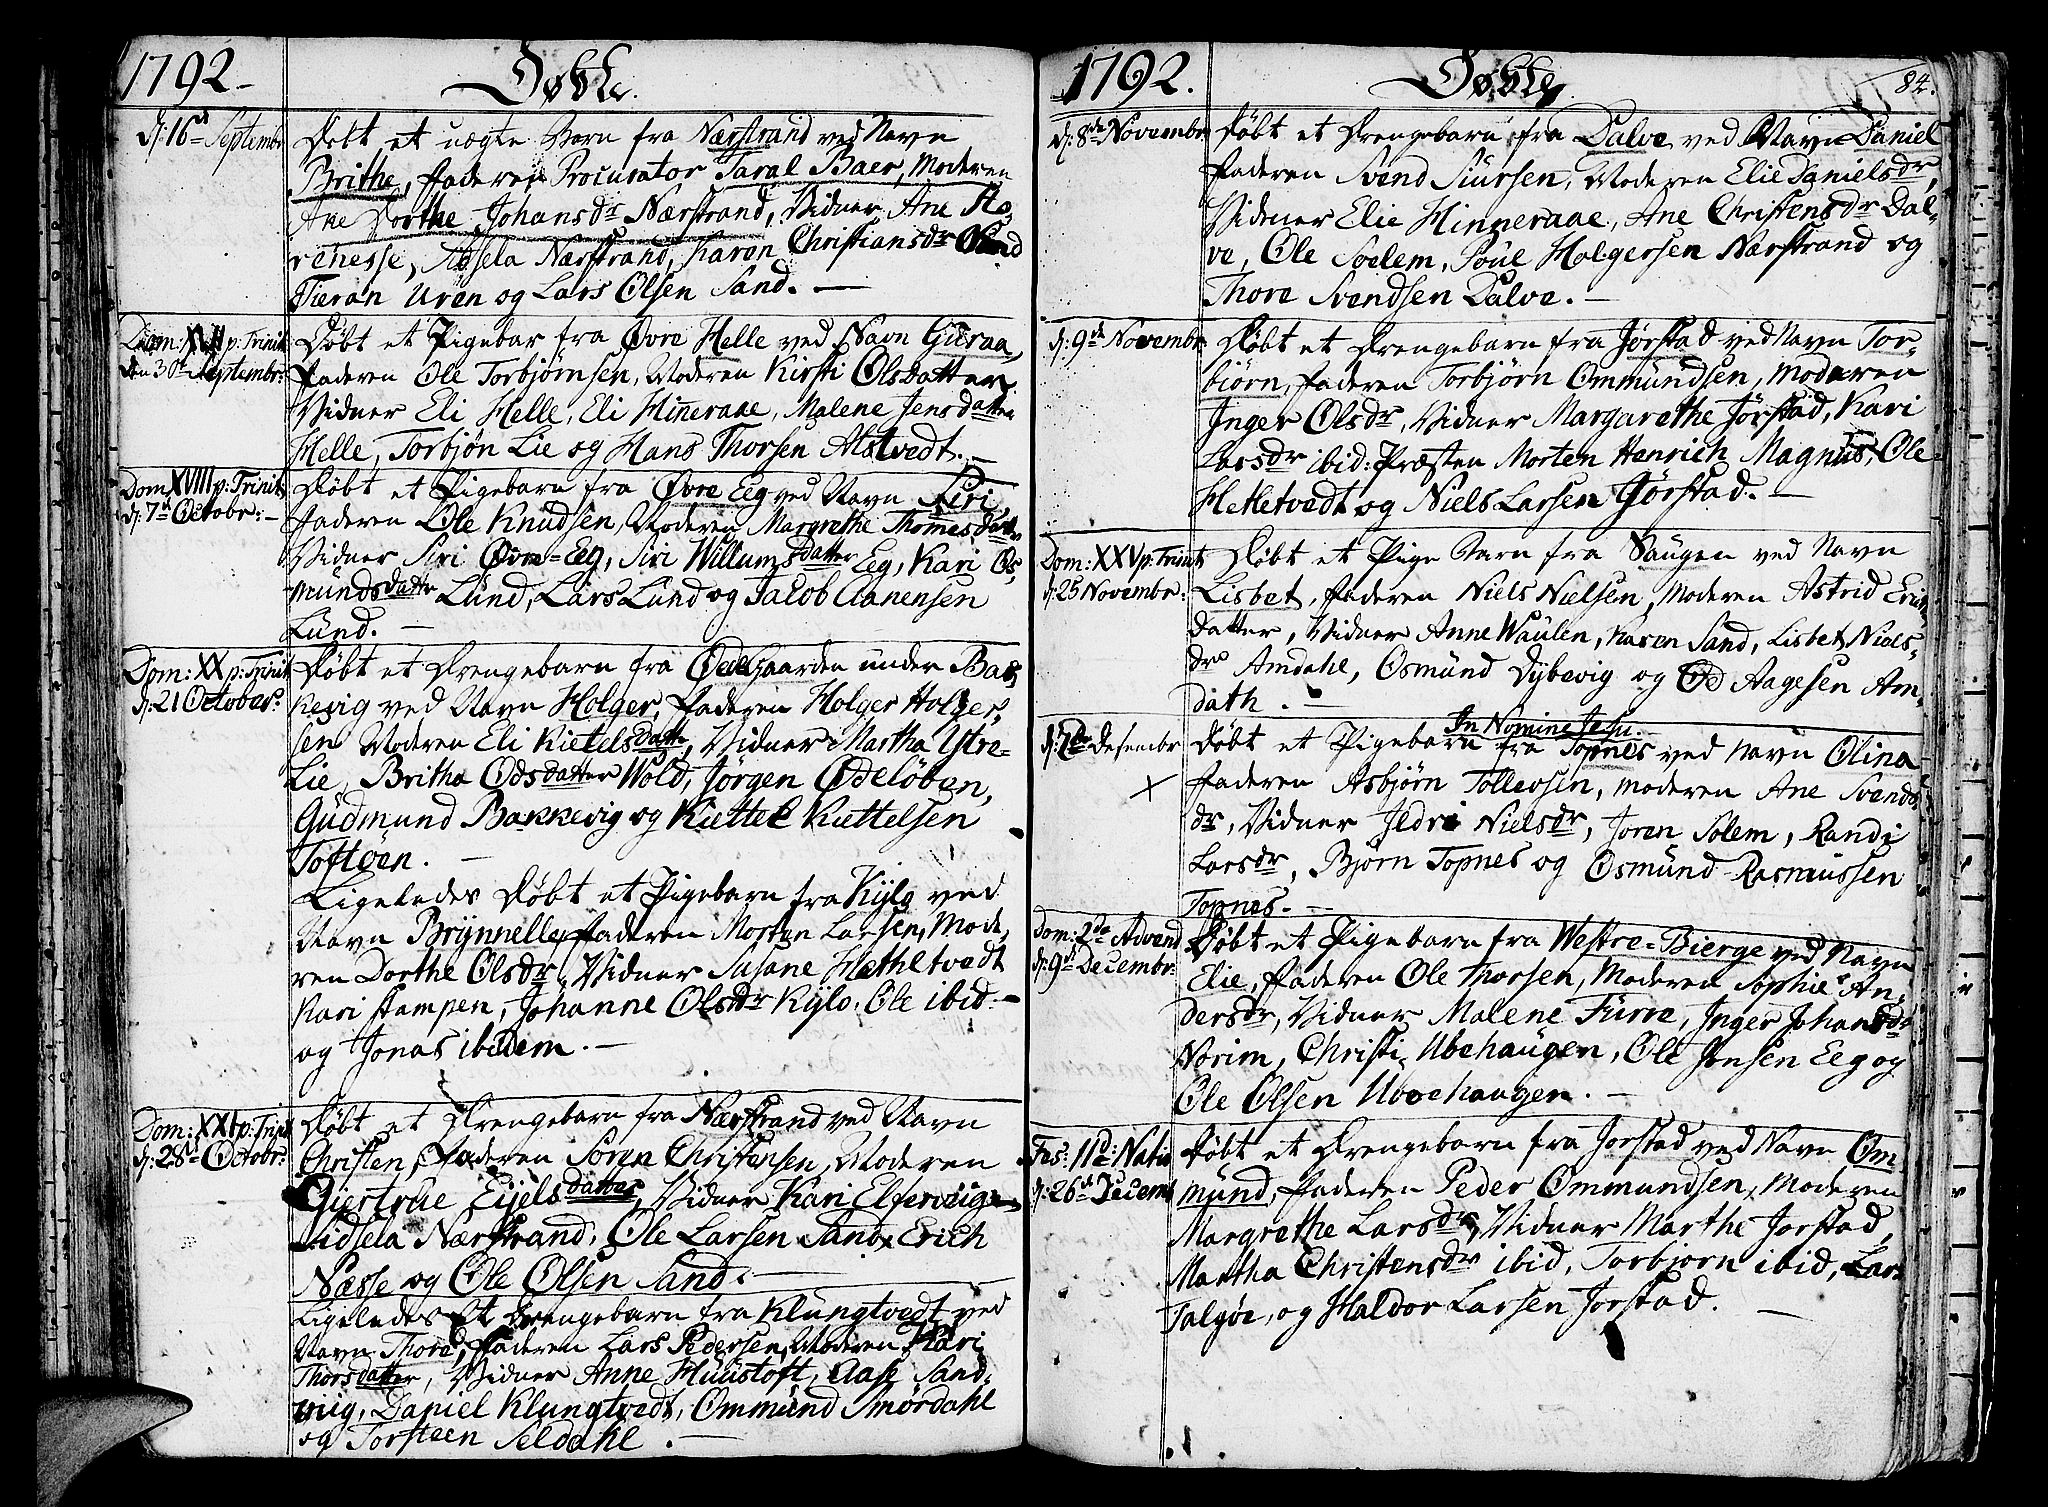 1792.
Døbte.
d: 16d Septembr
Døbt et uægte Barn fra Nærstrand ved Navn
Brithe, Faderen Procurator Taral Baer, Moderen
Ane Dorthe Johansdr Nærstrand, Vidner Ane
Nærstrand, Karen Christiansdr Sand
Uren og Lars Olsen Sand. —
Dom: p: Trinit
den 30te Septembr:
Døbt et Pigebar fra Øvre Helle ved Navn Guraa,
Faderen Ole Torbjørnsen, Moderen Kirsti Olsdatter
Vidner Eli Helle, Eli Hinneraae, Malene Jensdatter
Helle, Torbjøn Lie og Hans Thorsen Alstvedt. —
Dom XVIII p: Trinit
d: 7de Octobr: —
Døbt et Pigebarn fra Øvre Eeg ved Navn Siri,
Faderen Ole Knudsen, Moderen Margrethe Thomesdatter
Vidner Siri Øvre=Eeg, Siri Willumsdatter Eeg, Kari Os,
mundsdatter Lund, Lars Lund og Jacob Aanensen
Lund. —
Dom: XX p: Trinit
d: 21 October:
Døbt et Drengebarn fra ØdeGaarden under Bak,
kevig ved Navn Holger, Faderen Holger Holger,
sen Moderen Eli Kietelsdatter, Vidner Martha Ytre-
Lie, Britha Odsdatter Wold, Jørgen Ødeløben,
Gudmund Bakkevig og Kiettel Kiettelsen
Toftøen. —
Ligeledes Døbt et Pigebarn fra Kylo ved
Navn Brynnelle, Faderen Morten Larsen, Mode,
ren Dorthe Olsdr, Vidner Susane Hethletvedt
Kari Stampen, Johanne Olsdr Kylo, Ole ibid. —
og Jonas ibidem. —
Dom: XXI p: Trinit
d: 28d Octobr:
Døbt et Drengebarn fra Nærstrand ved Navn
Christen, Faderen Soren Christensen, Moderen
Giertrue Eijelsdatter, Vidner Kari
Sidsela Nærstrand, Ole Larsen Sand, Erich
Næsse og Ole Olsen Sand. —
Ligeledes Et Drengebarn fra Klungtvedt ved
Navn Thore, Faderen Lars Pedersen, Moderen Kari
Thorsdatter, Vidner Anne Huustoft, Aase Sand,
wiig, Daniel Klungtvedt, Ommund Smørdahl
og Torsteen Seldahl. —
1792.
Døbte
84.
d: 8de Novembr
Døbt et Drengebarn fra Dalve ved Navn Daniel
Faderen Svend Siursen, Moderen Elie Danielsdr,
Vidner Elie Hinneraae, Ane Christensdr Dal-
ve, Ole Soelem, Poul Holgersen Nærstrand og
Thore Svendsen Dalve. —
d: 9de Novembr
Døbt et Drengebarn fra Jørstad ved Navn Tor-
biørn, Faderen Torbjørn Ommundsen, Moderen
Inger Olsdr, Vidner Margarethe Jørstad, Kari
Larsdr ibid: Præsten Morten Henrich Magnus, Ole
Hetletvedt og Niels Larsen Jørstad. —
Dom: XXV p: Trinit
d: 25 Novembr:
Døbt et Pige Barn fra Haugen ved Navn
Lisbet, Faderen Niels Nielsen, Moderen Astrid Erichs
datter, Vidner Anne Waulen, Karen Sand, Lisbet Niels-
dr Amdahl, Osmund Dybevig og Od Aagesen Am-
dath. —
In Nomine Jesu.
d: 7de Desembr
×
Døbt et Pigebarn fra Topnes ved Navn Olina
Faderen Asbjørn Tollevsen, Moderen Ane Svends
dr, Vidner Ildri Nielsdr, Joren Solem, Randi
Larsdr, Bjørn Topnes og Osmund Rasmussen
Topnes. —
Dom: 2de Advend
d: 9d Decembr:
Døbt et Pigebarn fra Westre=Bierge ved Navn
Elie, Faderen Ole Thorsen, Moderen Sophie An,
dersdr, Vidner Malene Furre, Inger Johansdr
Norim, Christi Ubehaugen, Ole Jensen Eeg og
Ole Olsen Ubehaugen. —
Fes: IId: Nativ
d: 26d Decemb
Døbt et Drengebarn fra Jorstad ved Navn Om
mund, Faderen Peder Ommundsen, Moderen
Margrethe Larsdr, Vidner Marthe Jorstad,
Martha Christensdr ibid, Torbjorn ibid, Lars
Talgøe, og Haldor Larsen Jorstad. —